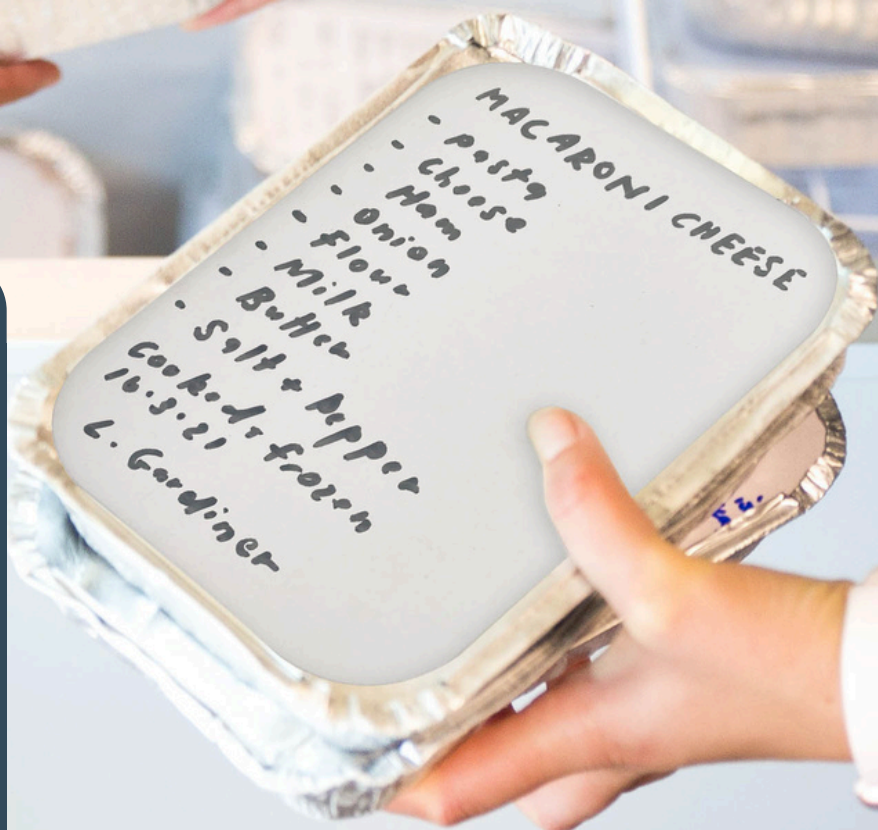 MACARONI CHEESE
• Pasta
• Cheese
• Ham
• Onion
• Flour
• Milk
• Butter
• Salt + Pepper
Cooked + frozen
16.3.21
L. Gardiner